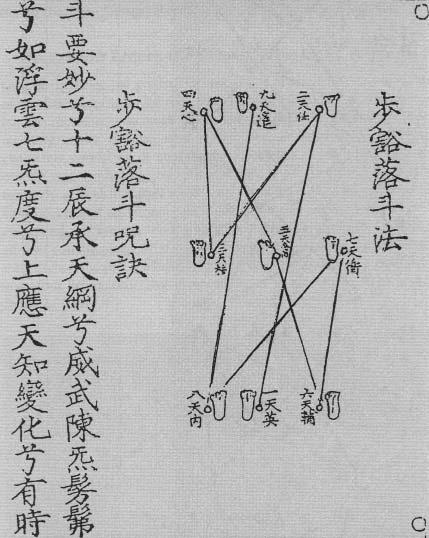 步豁落斗法
二天任
九天蓬
四天心
七天衝
五天禽
三天柱
六天輔
一天英
八天内
步豁落斗呪訣
斗要妙兮十二辰承天綱兮威武陳炁髣髴
兮如浮雲七炁度兮上應天知變化兮有時